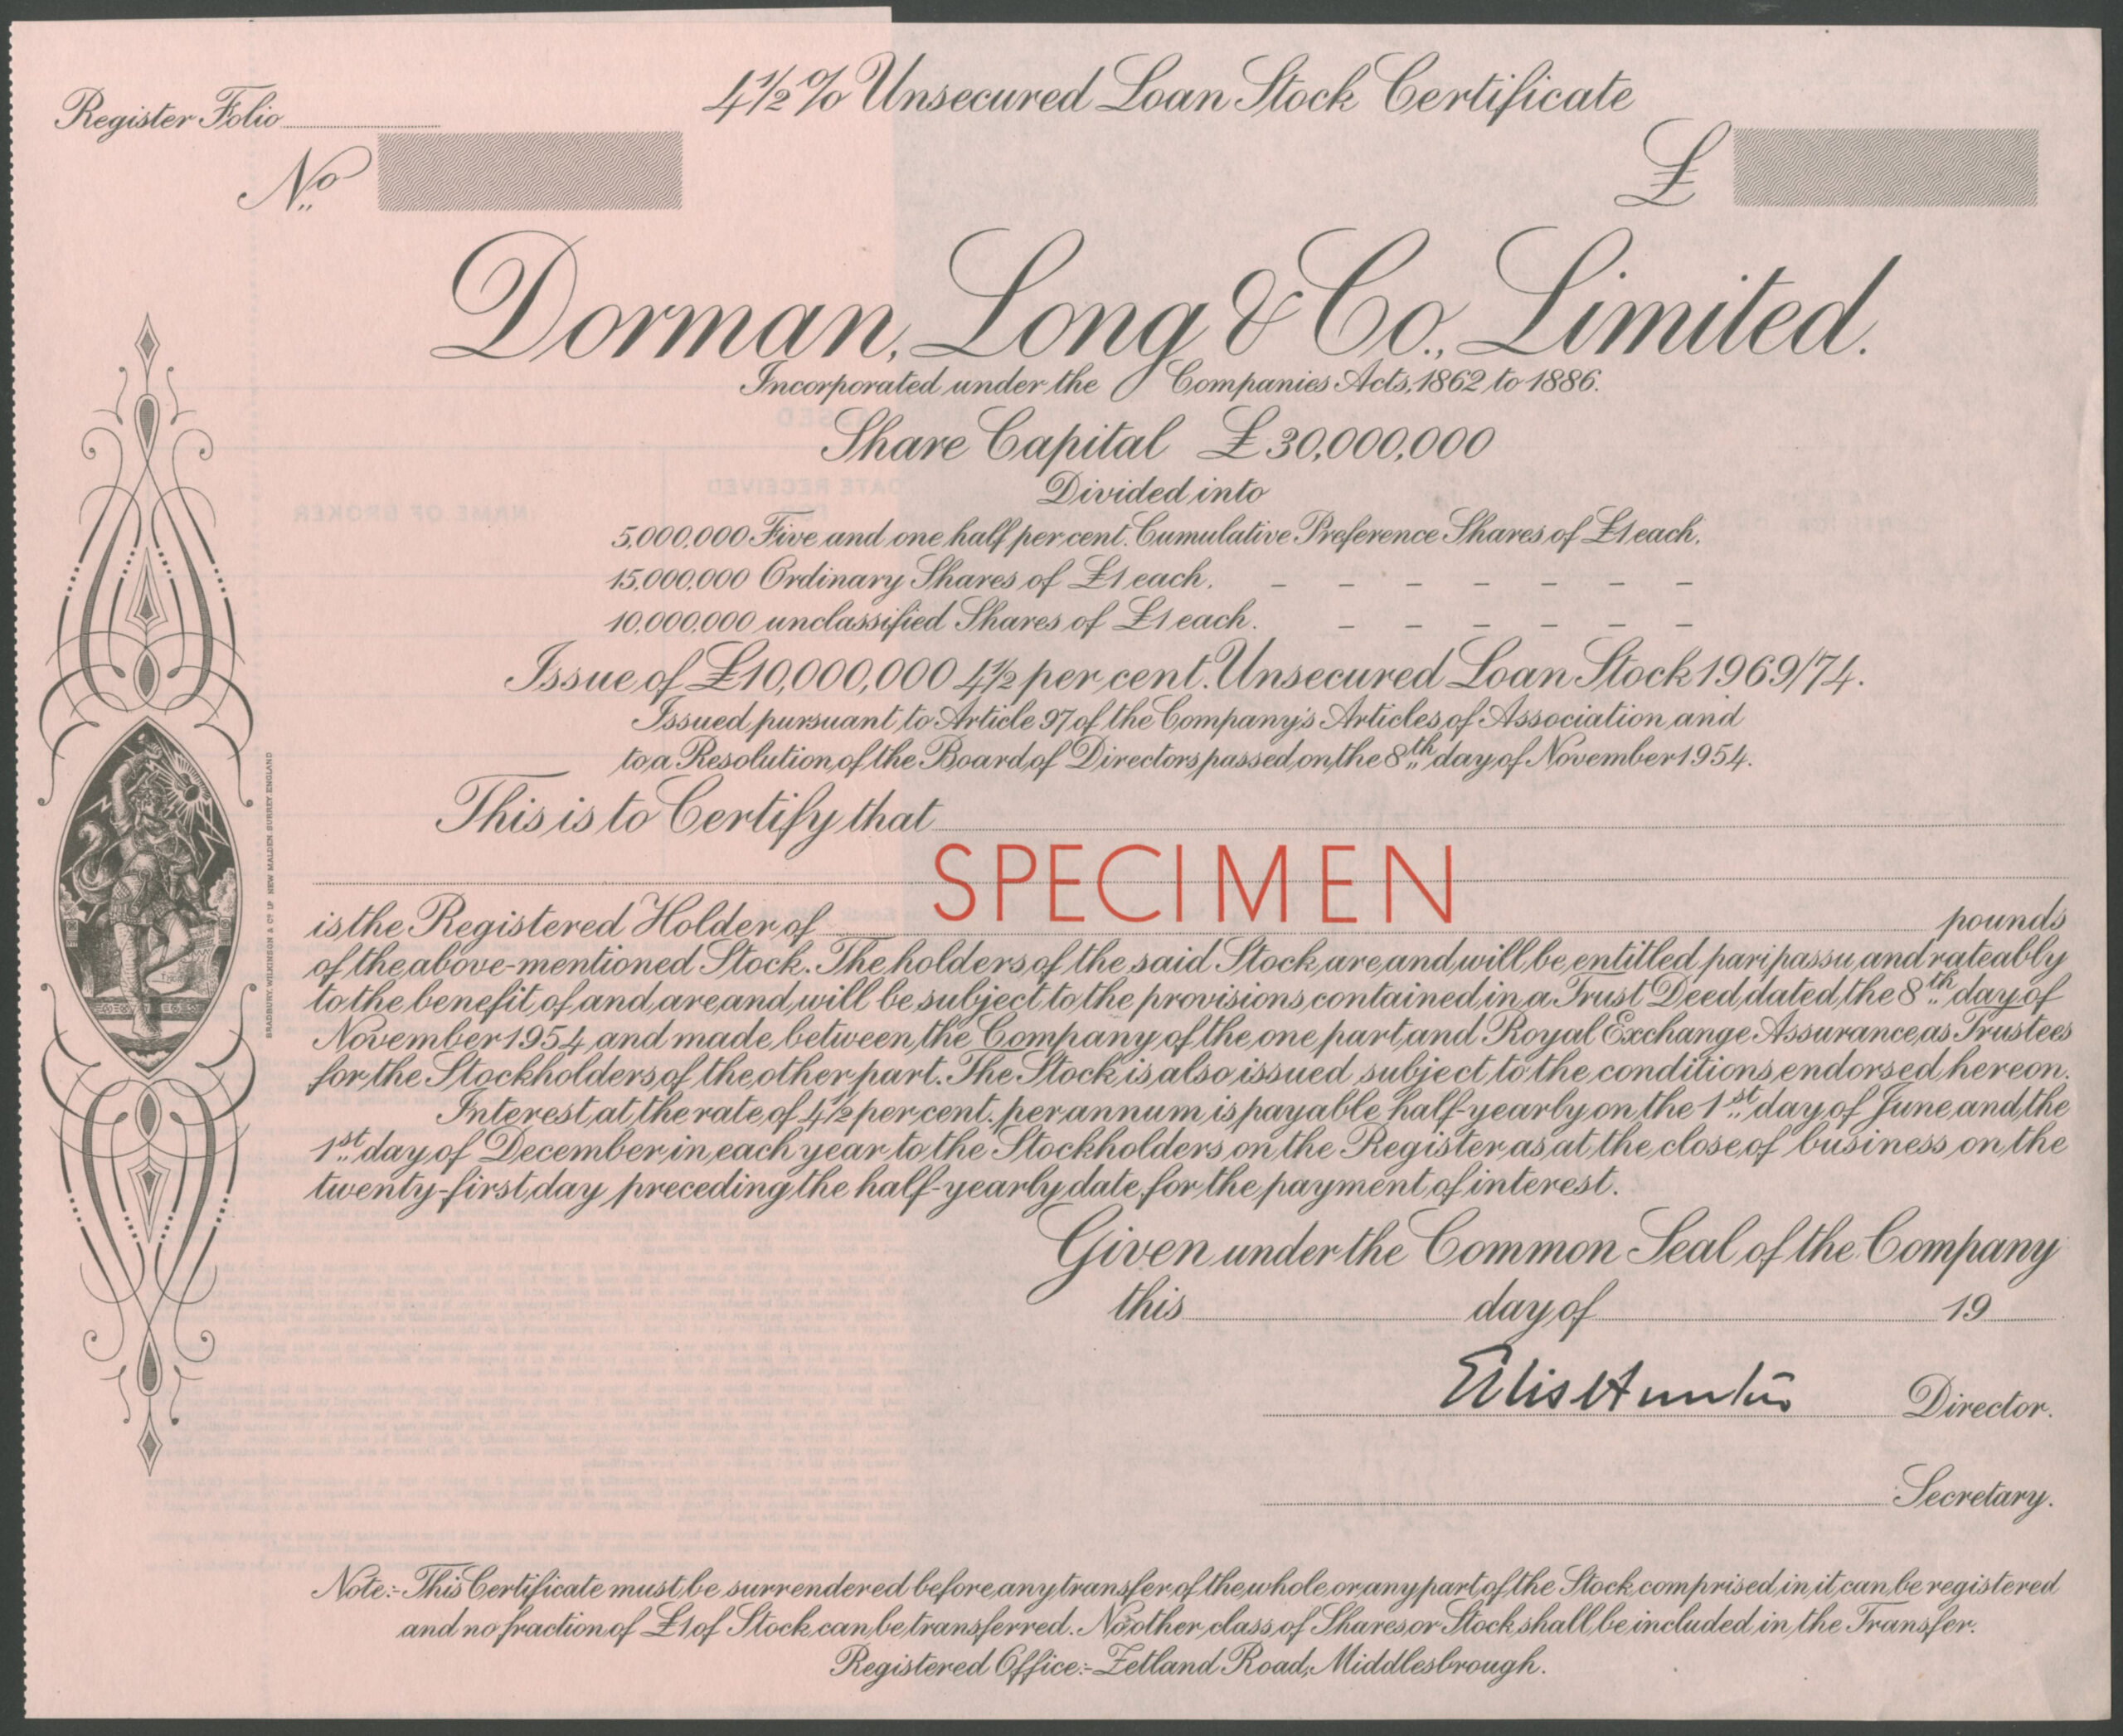 4½% Unsecured Loan Stock Certificate
Register Folio
No.
£
Dorman, Long & Co., Limited.
Incorporated under the Companies Acts, 1862 to 1886.
Share Capital £30,000,000
Divided into
5,000,000 Five and one half per cent. Cumulative Preference Shares of £1 each.
15,000,000 Ordinary Shares of £1 each. – – – – – – –
10,000,000 unclassified Shares of £1 each. – – – – – –
Issue of £10,000,000 4½ per cent. Unsecured Loan Stock 1969/74.
Issued pursuant to Article 97 of the Company's Articles of Association and
to a Resolution of the Board of Directors passed on the 8th day of November 1954.
This is to Certify that
SPECIMEN
is the Registered Holder of pounds
of the above-mentioned Stock. The holders of the said Stock are and will be entitled pari passu and rateably
to the benefit of and are and will be subject to the provisions contained in a Trust Deed dated the 8th day of
November 1954 and made between the Company of the one part and Royal Exchange Assurance as Trustees
for the Stockholders of the other part. The Stock is also issued subject to the conditions endorsed hereon.
Interest at the rate of 4½ per cent. per annum is payable half-yearly on the 1st day of June and the
1st day of December in each year to the Stockholders on the Register as at the close of business on the
twenty-first day preceding the half-yearly date for the payment of interest.
Given under the Common Seal of the Company
this day of 19
Ellis Hunter
Director.
Secretary.
Note:- This Certificate must be surrendered before any transfer of the whole or any part of the Stock comprised in it can be registered
and no fraction of £1 of Stock can be transferred. No other class of Shares or Stock shall be included in the Transfer.
Registered Office:- Zetland Road, Middlesbrough.
BRADBURY, WILKINSON & Co. Ld. NEW MALDEN, SURREY, ENGLAND
DATE RECEIVED
NAME OF BROKER